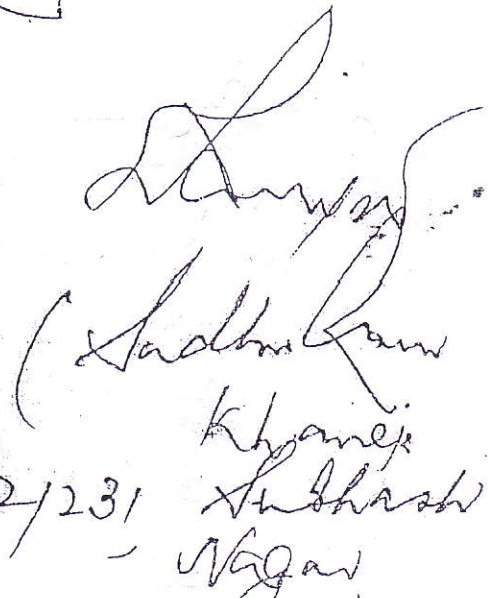 ( Sadhu Ram
Khaneja
2/231 Subhash
Nagar